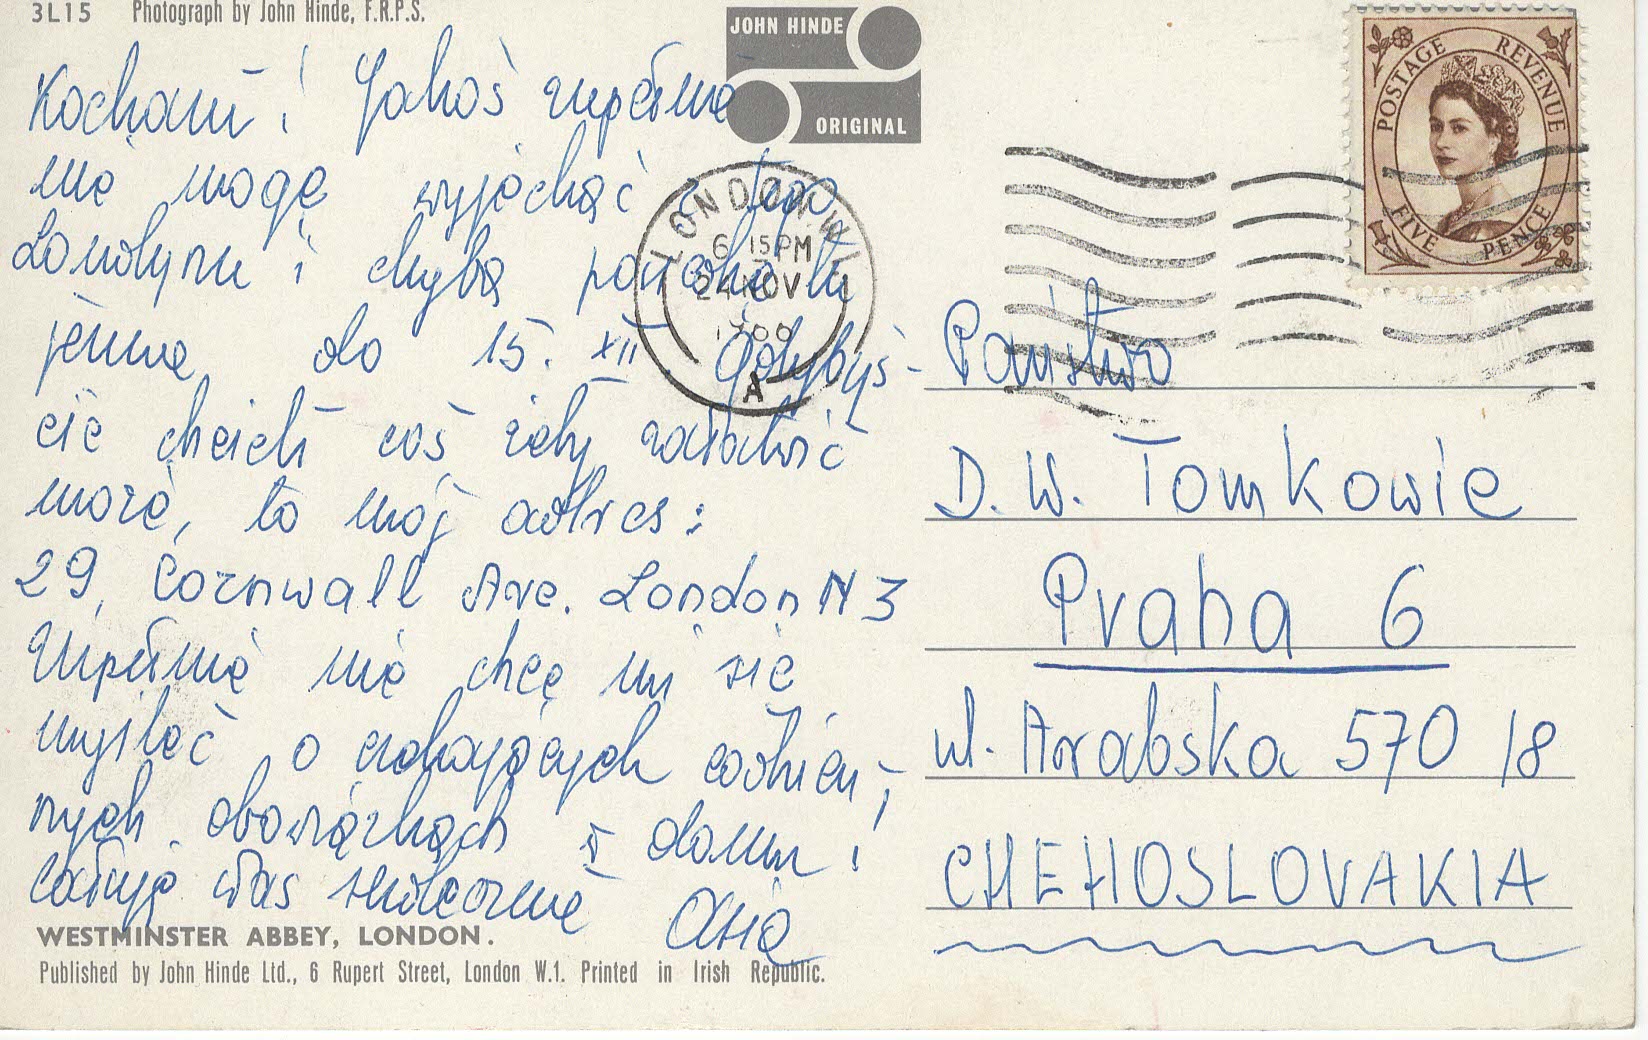 3L15 Photograph by John Hinde, F.R.P.S.
JOHN HINDE
ORIGINAL
POSTAGE REVENUE
FIVE PENCE
LONDON W.1.
6 15 PM
24 NOV
A
Kochani! Jakoś zupełnie
nie mogę wyjechać z tego
Londynu i chyba posiedzę tu
jeszcze do 15. XII Gdybyś-
cie chcieli coś żeby załatwić
może, to mój adres:
29, Cornwall Ave. London N 3
Zupełnie nie chce mi się
myśleć o czekających codzien-
nych obowiązkach w domu!
Całuję Was serdecznie Asia
Państwo
D. W. Tomkowie
Praha 6
ul. Arabska 570/8
CHEHOSLOVAKIA
WESTMINSTER ABBEY, LONDON.
Published by John Hinde Ltd., 6 Rupert Street, London W.1. Printed in Irish Republic.